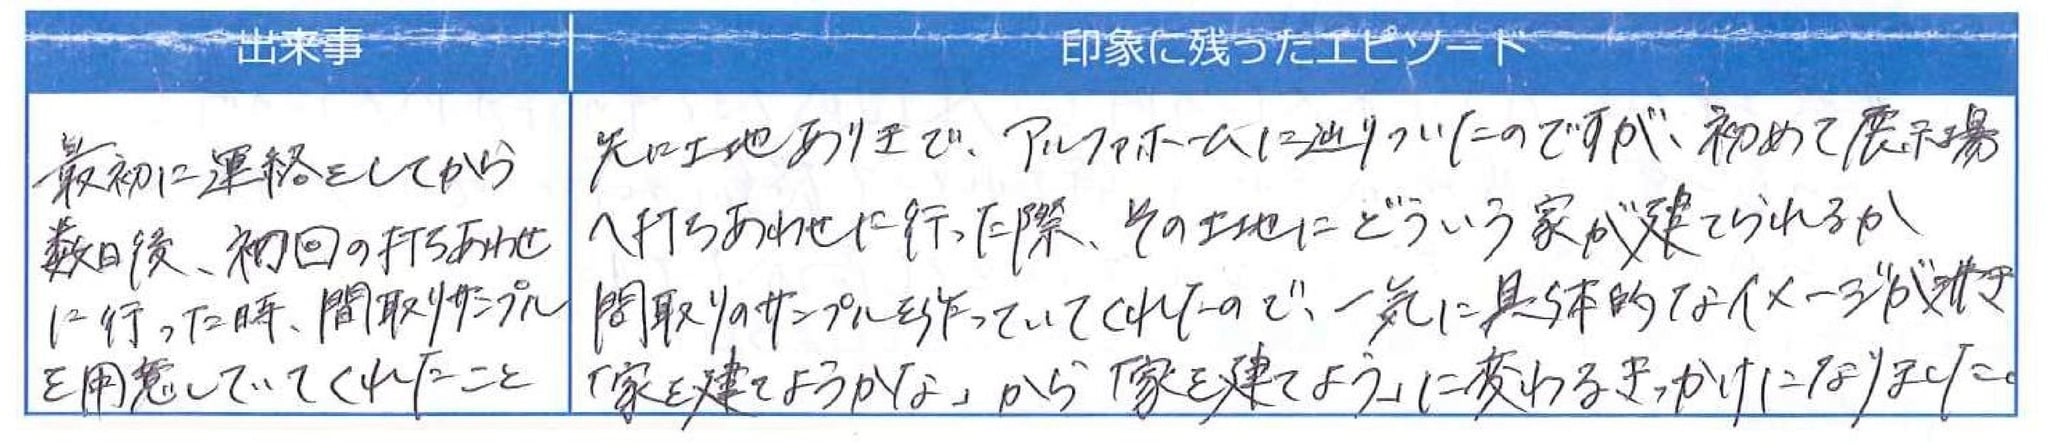 出来事
印象に残ったエピソード
最初に連絡をしてから
数日後、初回の打ちあわせ
に行った時、間取りサンプル
を用意していてくれたこと
先に土地ありきで、アルファホームに辿りついたのですが、初めて展示場
へ打ちあわせに行った際、その土地にどういう家が建てられるか
間取りのサンプルを作っていてくれたので、一気に具体的なイメージが湧き
「家を建てようかな」から「家を建てよう」に変わるきっかけになりました。